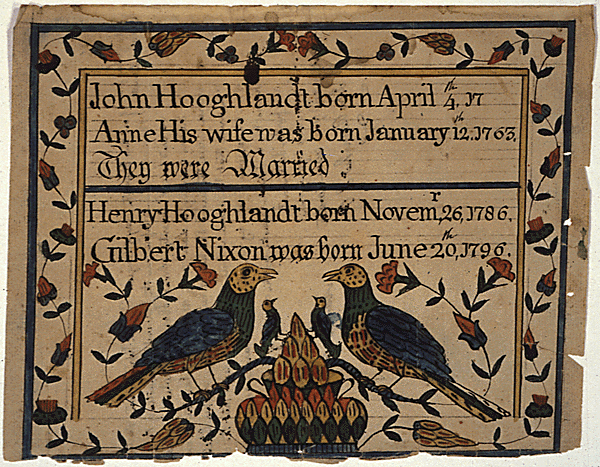 John Hooghlandt born April 4th, 17
Anne His wife was born January 12th, 1763.
They were Married.
Henry Hooghlandt born Novemr, 26, 1786.
Gilbert Nixon was born June 20th, 1796.